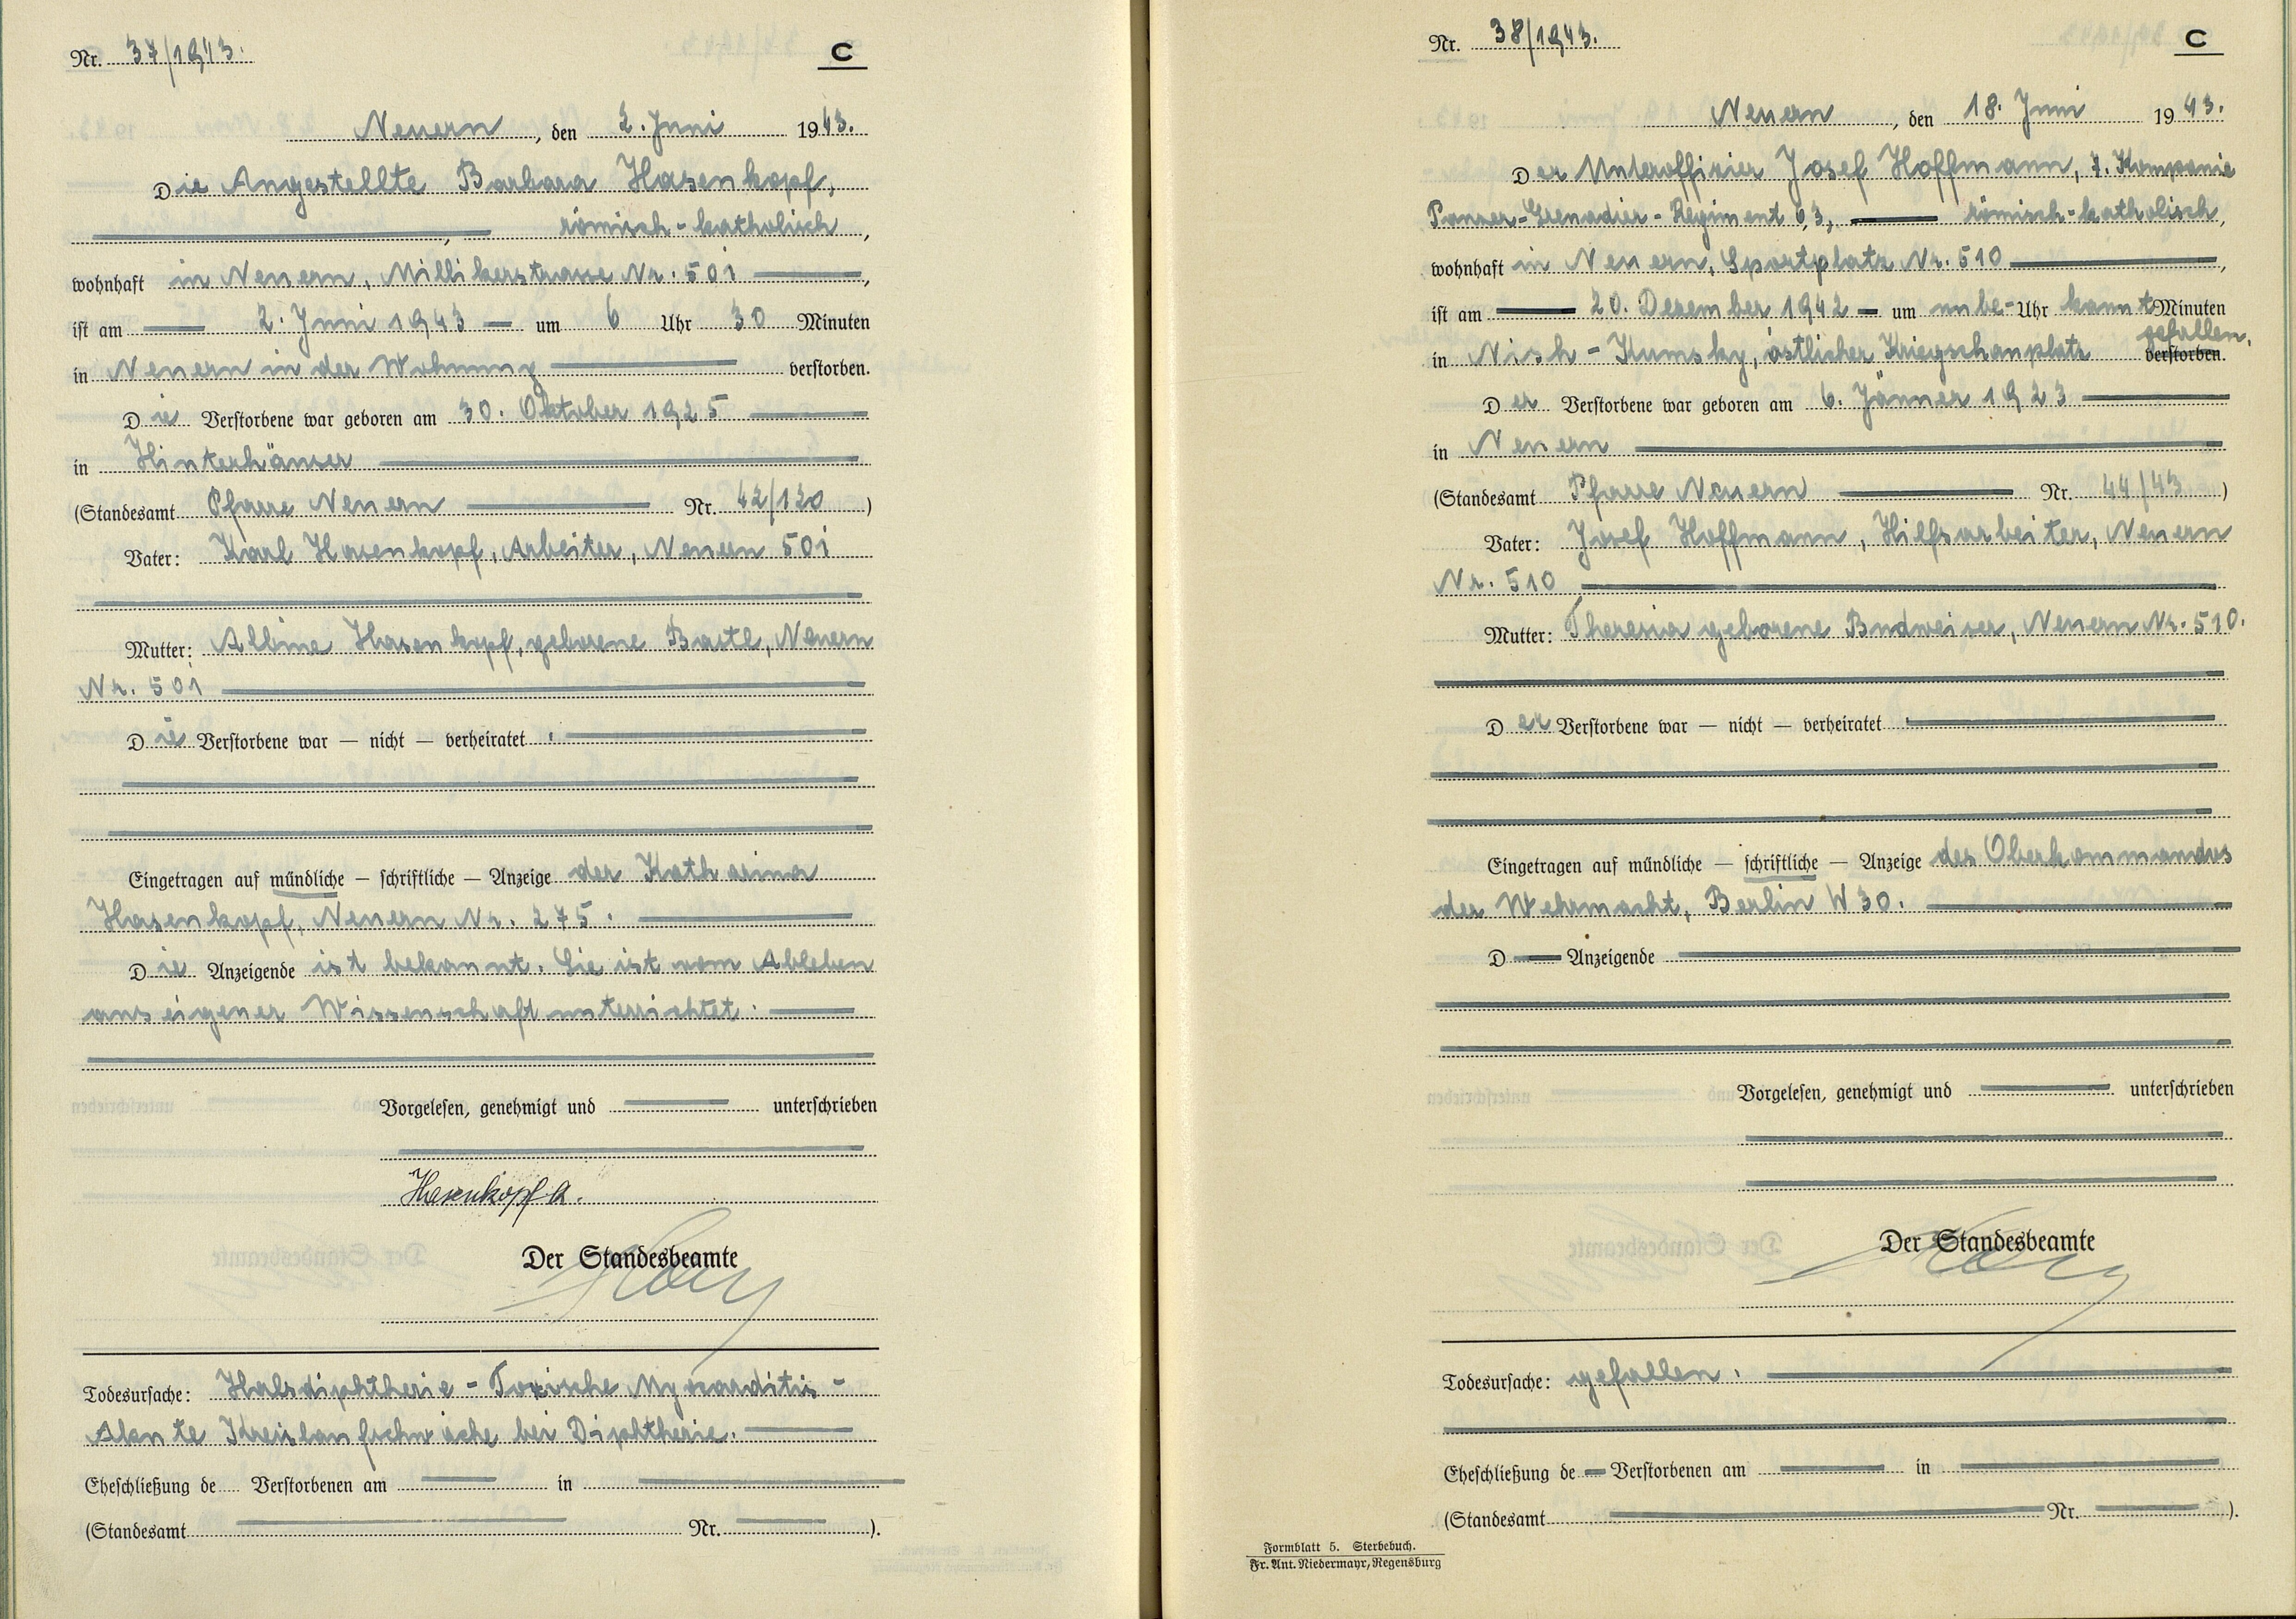 Nr. 37/1943.
C
Neuern, den 2. Juni 1943.
Die Angestellte Barbara Hasenkopf,
, römisch-katholisch,
wohnhaft in Neuern, Millikerstrasse Nr. 501,
ist am 2. Juni 1943 um 6 Uhr 30 Minuten
in Neuern in der Wohnung verstorben.
Die Verstorbene war geboren am 30. Oktober 1925
in Hinterhäuser
(Standesamt Pfarre Neuern Nr. 42/120)
Vater: Karl Hasenkopf, Arbeiter, Neuern 501
Mutter: Albine Hasenkopf, geborene Bastl, Neuern
Nr. 501
Die Verstorbene war — nicht — verheiratet.
Eingetragen auf mündliche — schriftliche — Anzeige der Katharina
Hasenkopf, Neuern Nr. 275.
Die Anzeigende ist bekannt. Sie ist vom Ableben
aus eigener Wissenschaft unterrichtet.
Vorgelesen, genehmigt und unterschrieben
Hasenkopf K.
Der Standesbeamte
Todesursache: Halsdiphtherie - Toxische Myocarditis -
Akute Kreislaufschwäche bei Diphtherie.
Eheschließung de Verstorbenen am in
(Standesamt Nr. ).
Nr. 38/1943.
C
Neuern, den 18. Juni 1943.
Der Unteroffizier Josef Hoffmann, 7. Kompanie
Panzer-Grenadier-Regiment 63, römisch-katholisch,
wohnhaft in Neuern, Sportplatz Nr. 510,
ist am 20. Dezember 1942 um unbe- Uhr kannt Minuten
gefallen.
in Nish-Kumsky, östlicher Kriegschauplatz verstorben.
Der Verstorbene war geboren am 6. Jänner 1923
in Neuern
(Standesamt Pfarre Neuern Nr. 44/43)
Vater: Josef Hoffmann, Hilfsarbeiter, Neuern
Nr. 510
Mutter: Theresia geborene Budweiser, Neuern Nr. 510.
Der Verstorbene war — nicht — verheiratet.
Eingetragen auf mündliche — schriftliche — Anzeige des Oberkommandos
der Wehrmacht, Berlin W 30.
D Anzeigende
Vorgelesen, genehmigt und unterschrieben
Der Standesbeamte
Todesursache: gefallen.
Eheschließung de Verstorbenen am in
(Standesamt Nr. ).
Formblatt 5. Sterbebuch.
Fr. Ant. Niedermayr, Regensburg